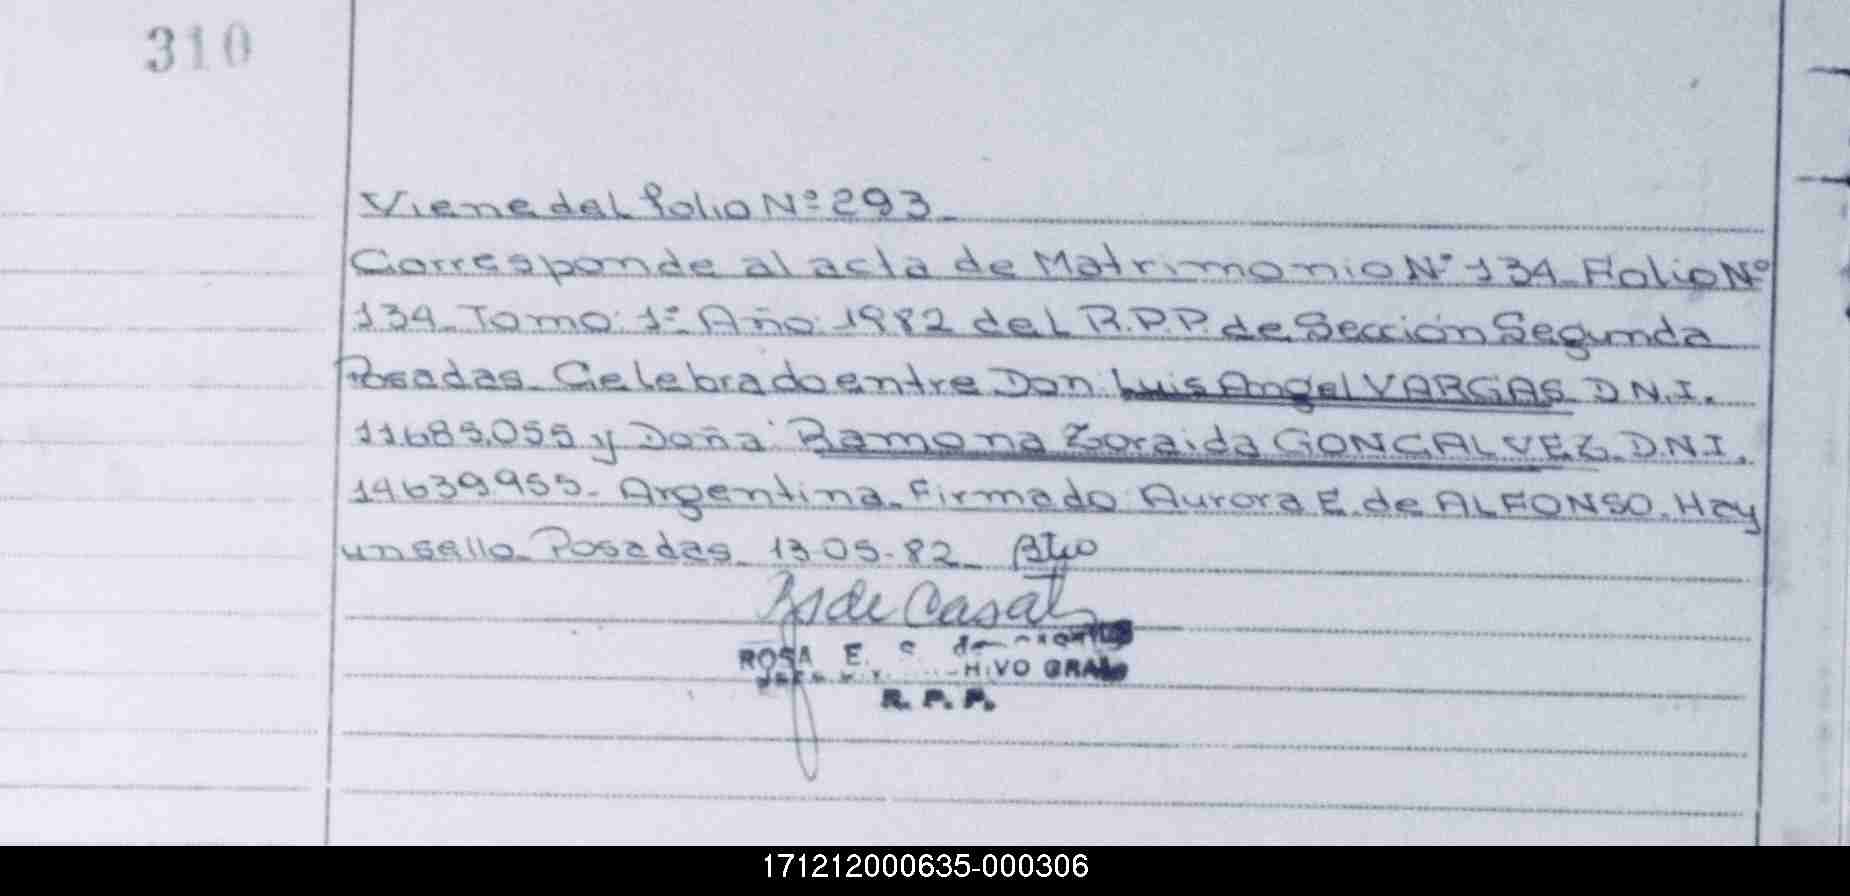 310
Viene del folio Nº 293_
Corresponde al acta de Matrimonio Nº 134_Folio Nº
134_Tomo: 1º Año: 1982 del R.P.P. de Sección Segunda
Posadas_Celebrado entre Don: Luis Angel VARGAS_D.N.I.
11.685.055 y Doña: Ramona Zoraida GONCALVEZ_D.N.I.
14639955_Argentina_Firmado: Aurora E. de ALFONSO. Hay
un sello_Posadas_13-05-82_
de Casat
ROSA E.
HIVO GRAL
R. P. P.
171212000635-000306